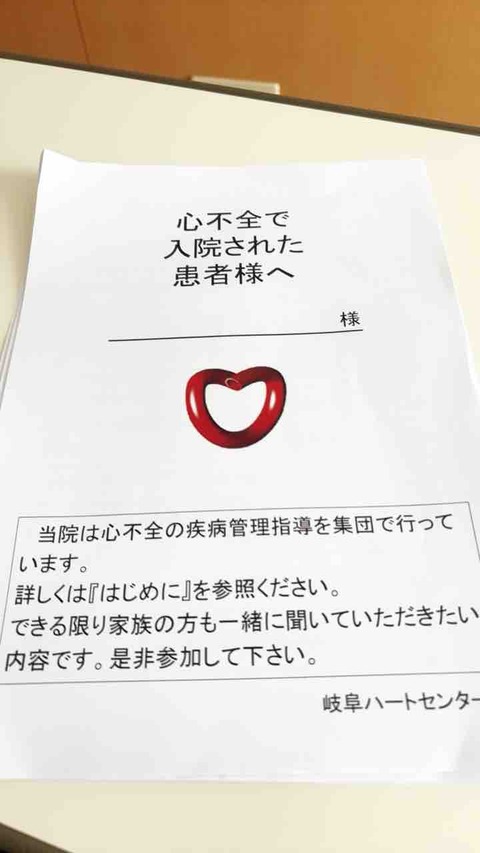 心不全で
入院された
患者様へ
様
当院は心不全の疾病管理指導を集団で行って
います。
詳しくは『はじめに』を参照ください。
できる限り家族の方も一緒に聞いていただきたい
内容です。是非参加して下さい。
岐阜ハートセンター